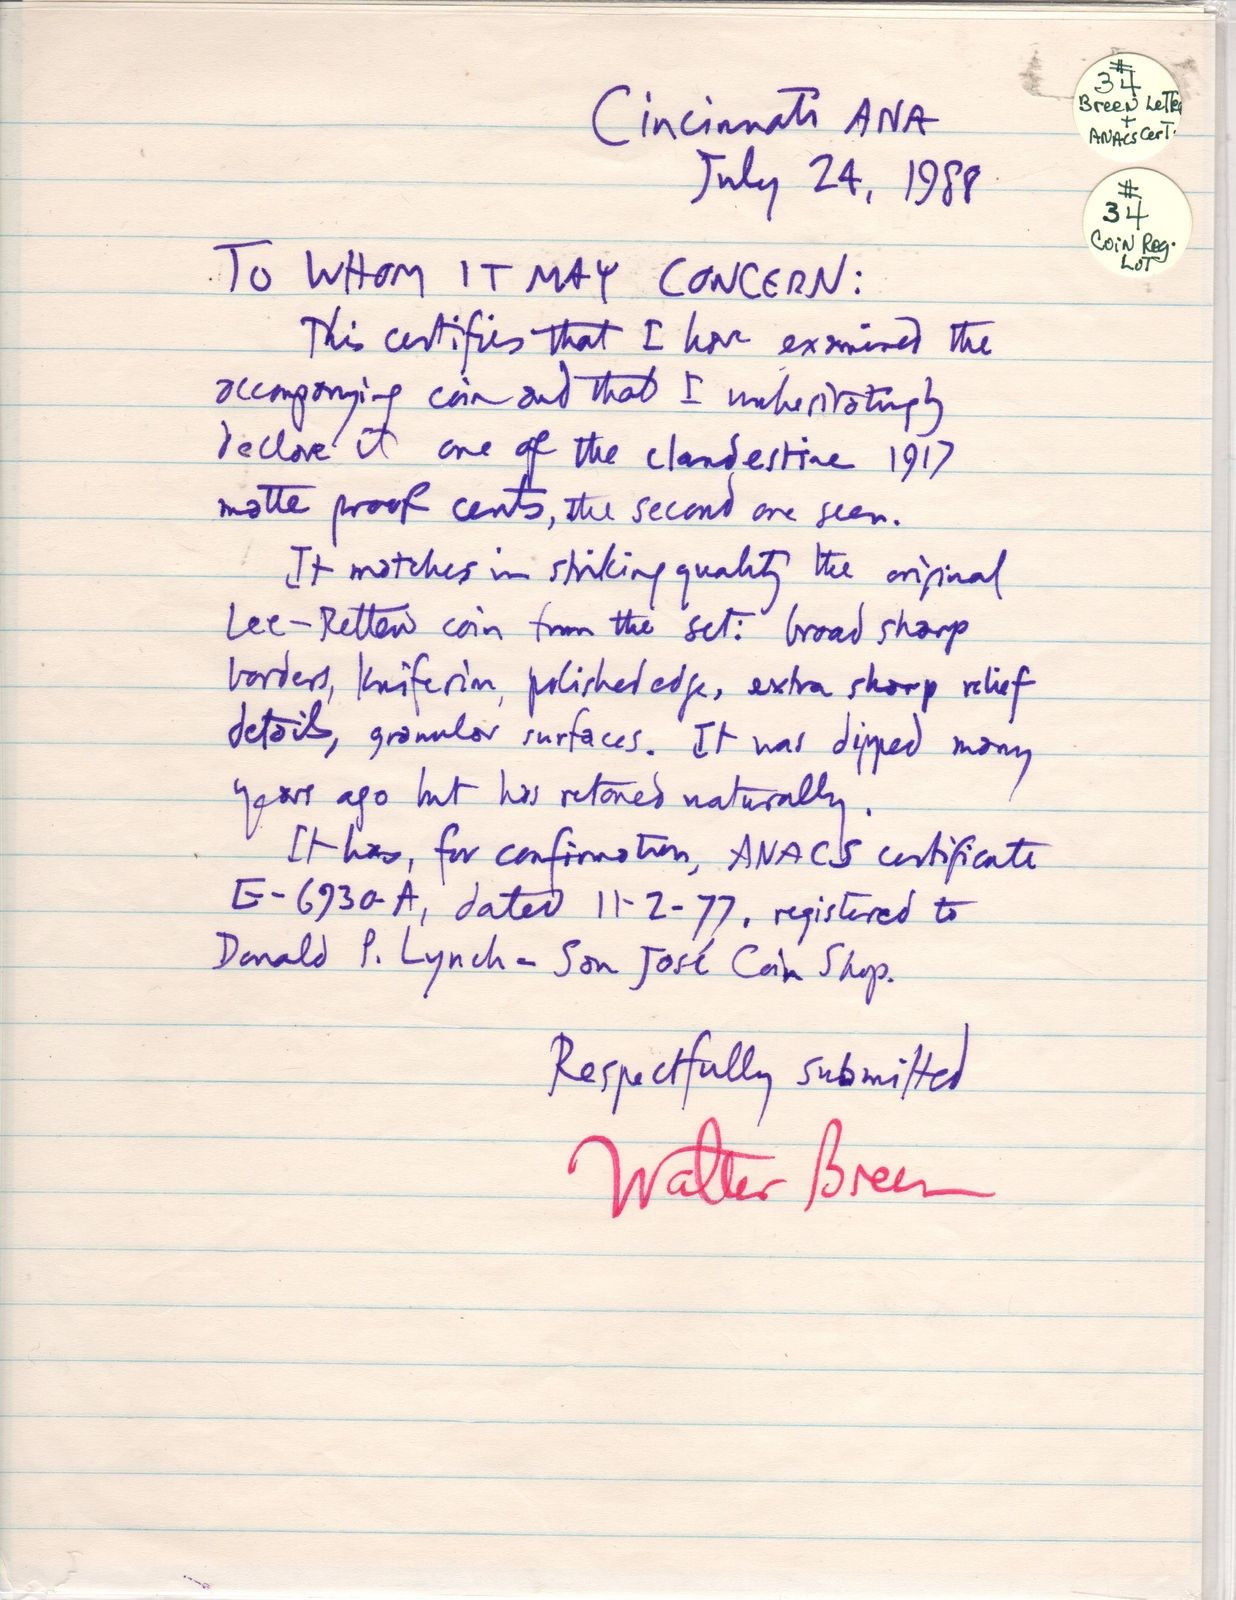 Cincinnati ANA
July 24, 1988
#
34
Breen Letter
+
ANACS Cert.
#
34
Coin Reg.
Lot
TO WHOM IT MAY CONCERN:
This certifies that I have examined the
accompanying coin and that I unhesitatingly
declare it one of the clandestine 1917
matte proof cents, the second one seen.
It matches in striking quality the original
Lee-Rettew coin from the set: broad sharp
borders, kniferim, polished edge, extra sharp relief
details, granular surfaces. It was dipped many
years ago but has retoned naturally.
It has, for confirmation, ANACS certificate
E-6930-A, dated 11-2-77, registered to
Donald P. Lynch - San José Coin Shop.
Respectfully submitted
Walter Breen